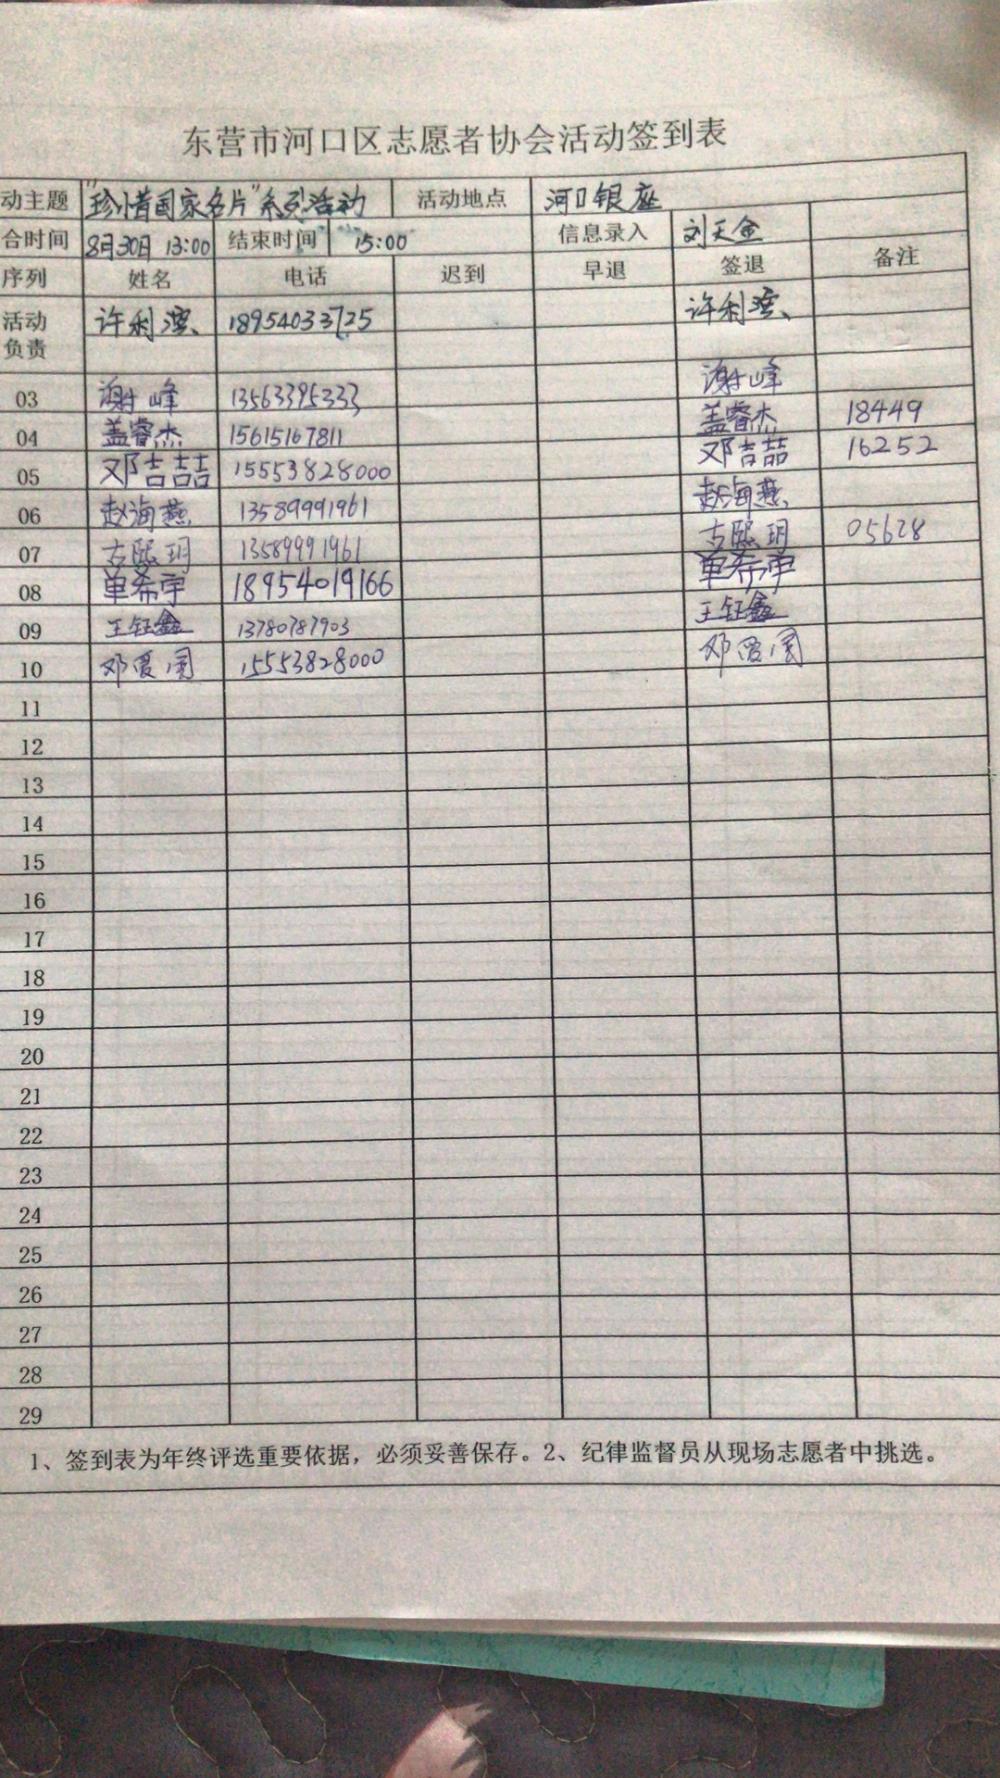 东营市河口区志愿者协会活动签到表
动主题 "珍惜国家名片"系列活动 活动地点 河口银座
合时间 8月30日 13:00 结束时间 15:00 信息录入 刘天金
序列 姓名 电话 迟到 早退 签退 备注
活动负责 许利滨 18954033725 许利滨
03 谢峰 13563395333 谢峰
04 盖睿杰 15615167811 盖睿杰 18449
05 邓吉喆 15553828000 邓吉喆 16252
06 赵海燕 13589991961 赵海燕
07 古熙玥 13589991961 古熙玥 05628
08 单希宇 18954019166 单希宇
09 王钰鑫 13780787903 王钰鑫
10 邓爱国 15553828000 邓爱国
11
12
13
14
15
16
17
18
19
20
21
22
23
24
25
26
27
28
29
1、签到表为年终评选重要依据，必须妥善保存。2、纪律监督员从现场志愿者中挑选。